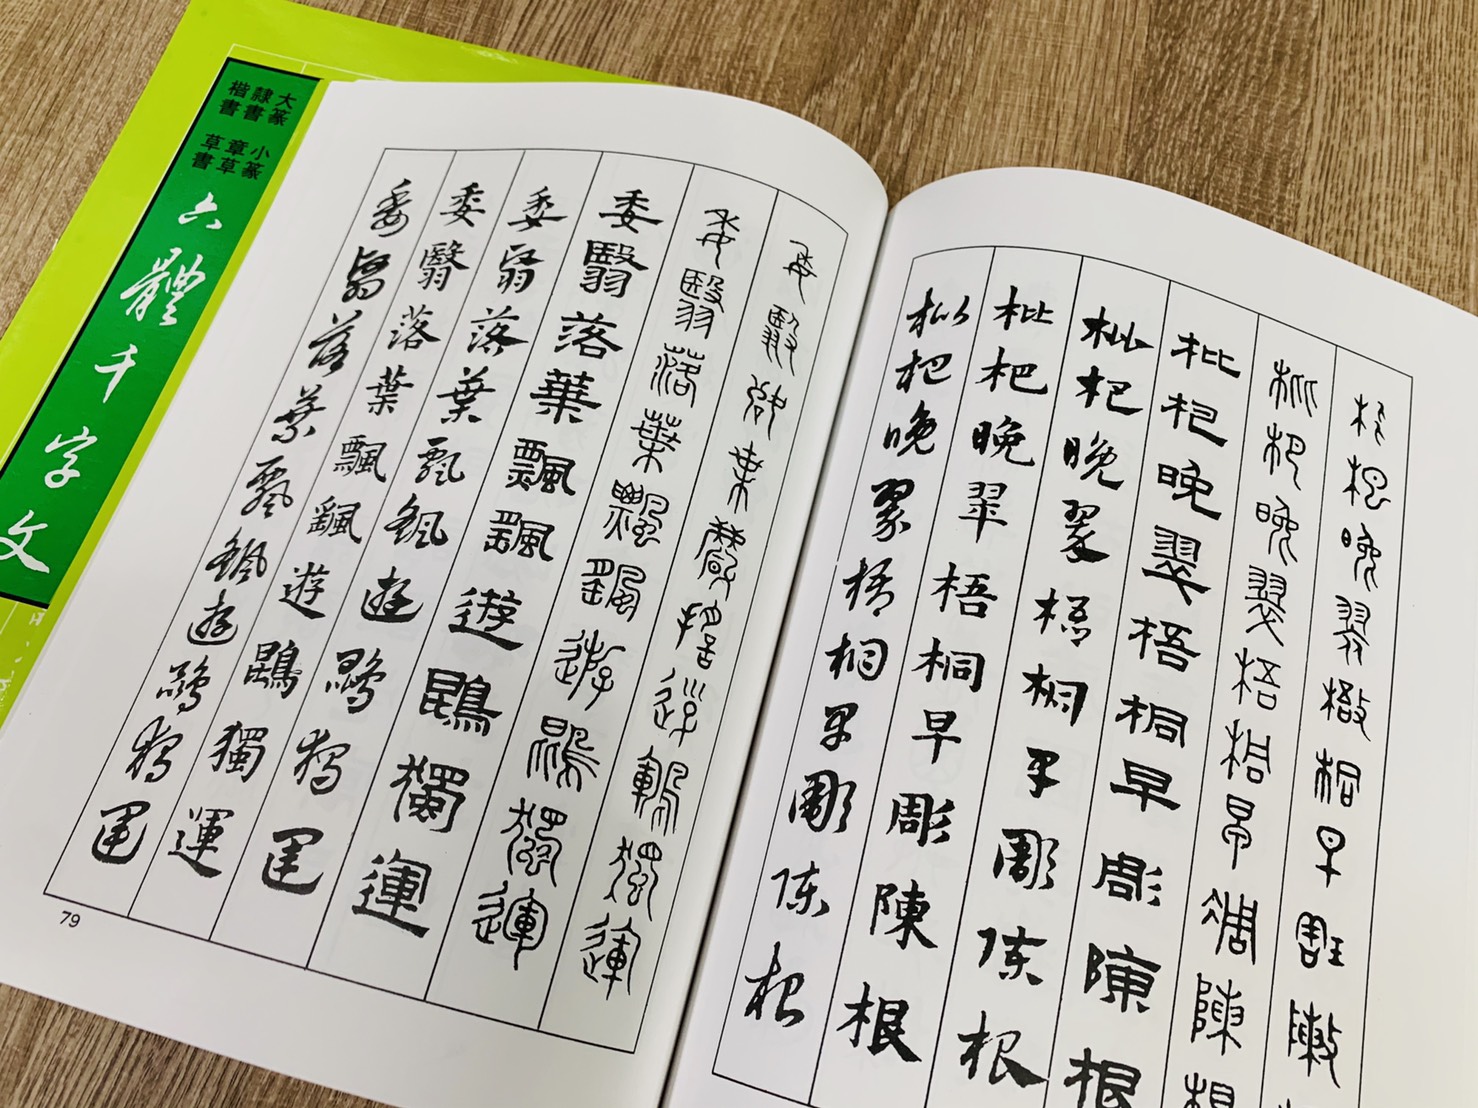 大篆 小篆
隸書 章草
楷書 草書
六體千字文
枇杷晚翠梧桐早彫陳
枇杷晚翠梧桐早彫陳根
枇杷晚翠梧桐早彫陳根
枇杷晚翠梧桐早彫陳根
枇杷晚翠梧桐早彫陳根
枇杷晚翠梧桐早彫陳根
委翳落葉飄颻遊鵾獨運
委翳落葉飄颻遊鵾獨運
委翳落葉飄颻遊鵾獨運
委翳落葉飄颻遊鵾獨運
委翳落葉飄颻遊鵾獨運
委翳落葉飄颻遊鵾獨運
79